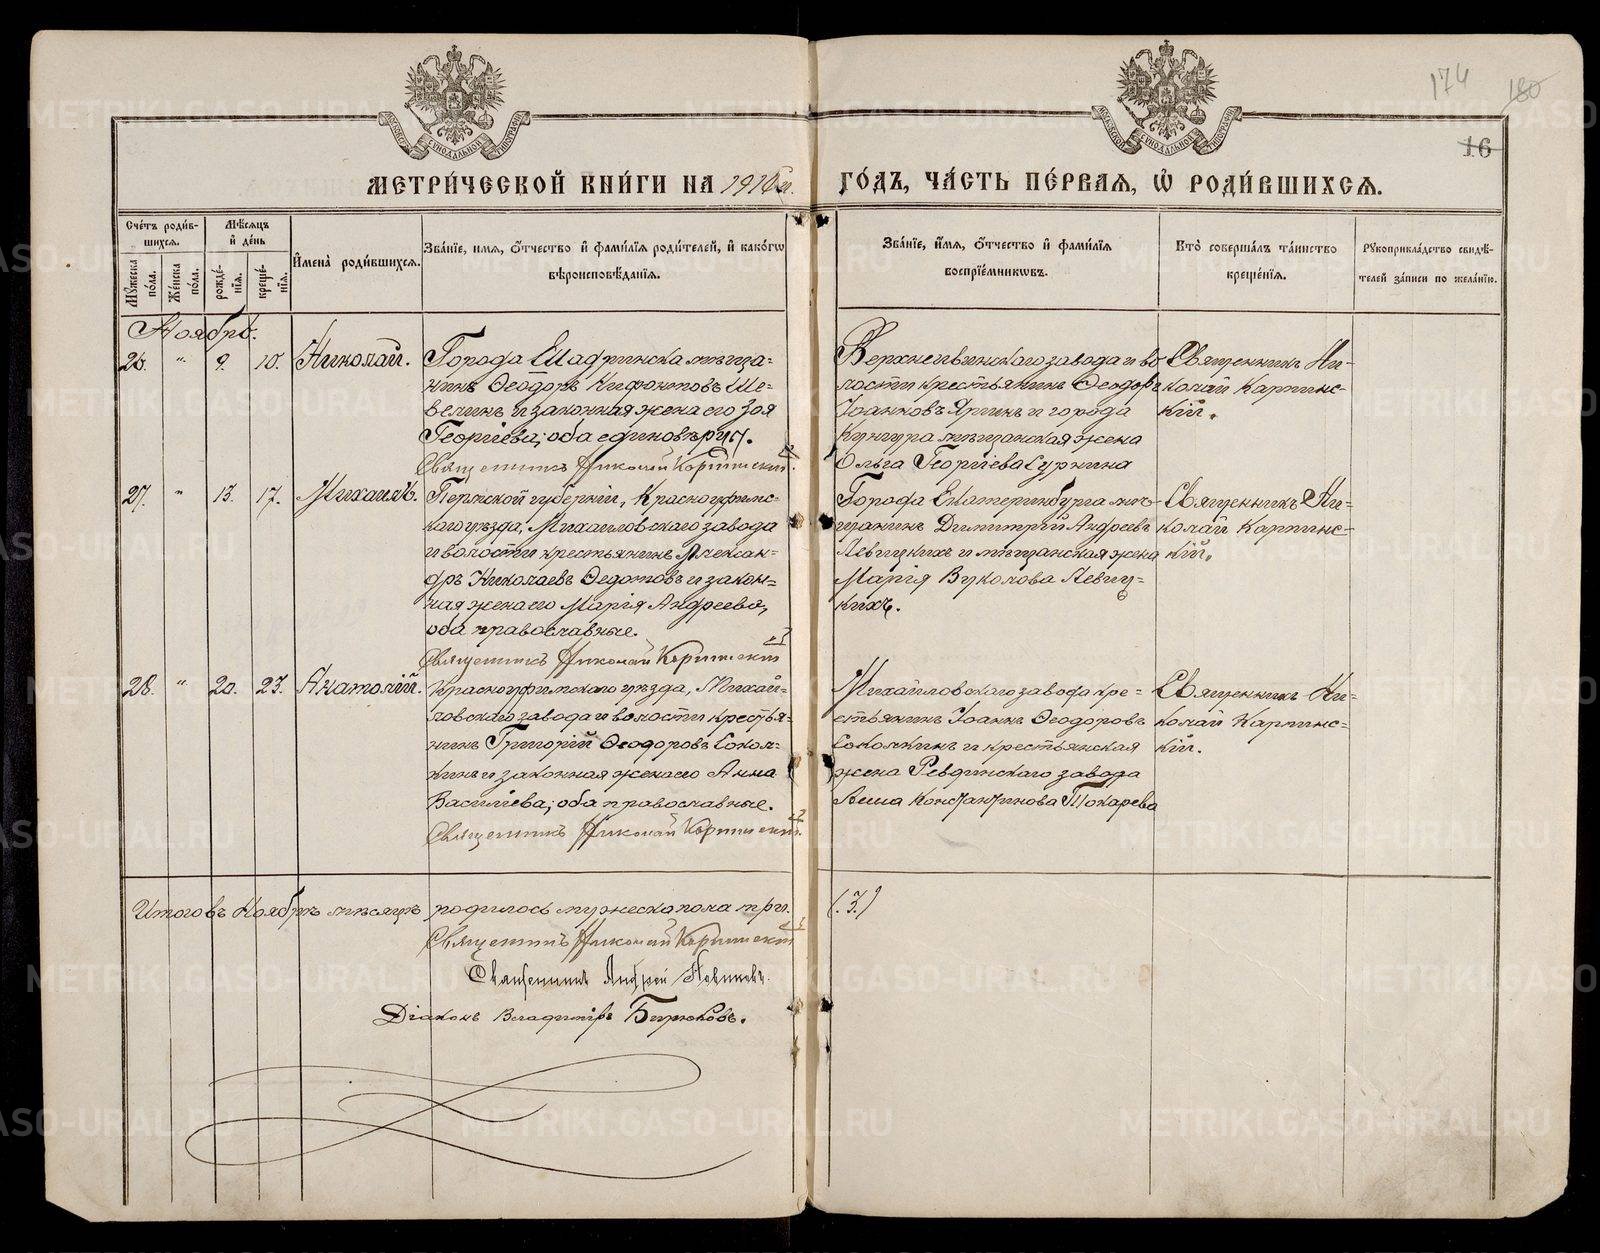 174 180
16
МЕТРИ́ЧЕСКОЙ КНИ́ГИ НА 1916 й. ГО́ДЪ, ЧА́СТЬ ПЕ́РВАЯ, Ѡ҆ РОДИ́ВШИХСѦ.
Сче́тъ роди́в-
шихся.
Мѣ́сяцъ
и҆ де́нь
Мꙋ́жеска по́ла.
Же́нска по́ла.
рожде́-
нїя.
креще́-
нїя.
И҆мена̀ роди́вшихся.
Зва́нїе, имя, ѻ҆́тчество и҆ фами́лїя роди́телей, и҆ како́гѡ
вѣроисповѣ́данїя.
Зва́нїе, и҆́мя, ѻ҆́тчество и҆ фами́лїя
воспрїе́мникѡвъ.
Кто̀ соверша́лъ та́инство
креще́нїя.
Рꙋкоприкла́дство свидѣ́-
телей за́писи по жела́нїю.
Ноябрь.
26. " 9. 10. Николай.
Города Шадринска мѣща-
нинъ Ѳеодоръ Ше-
велинъ и законная жена его Зоя
Георгіева; оба единовѣрцы.
Священникъ Николай Карпинскій.
Верхнейвинскаго завода и во
лости крестьянинъ Ѳеодоръ
Іоанновъ Яринъ и города
Кунгура мѣщанская жена
Ольга Георгіева Суркина
Священникъ Ни-
колай Карпинс-
кій.
27. " 13. 17. Михаилъ.
Пермской губерніи, Красноуфимс-
каго уѣзда, Михайловскаго завода
и волости крестьянинъ Алексан-
дръ Николаевъ Ѳедотовъ и закон-
ная жена его Марія Андреева,
оба православные.
Священникъ Николай Карпинскій
Города Екатеринбурга мѣ-
щанинъ Димитрій Андреевъ
Левицкихъ и мѣщанская жена
Марія Вуколова Левиц-
кихъ.
Священникъ Ни-
колай Карпинс-
кій.
28. " 20. 23. Анатолій.
Красноуфимскаго уѣзда, Михай-
ловскаго завода и волости крестья-
нинъ Григорій Ѳеодоровъ Сокол-
кинъ и законная жена его Анна
Васильева; оба православные.
Священникъ Николай Карпинскій.
Михайловскаго завода кре-
стьянинъ Іоаннъ Ѳеодоровъ
Соколкинъ и крестьянская
жена Ревдинскаго завода
Анна Константинова Токарева
Священникъ Ни-
колай Карпинс-
кій.
Итого въ Ноябрѣ мѣсяцѣ родилось мужеска пола три. (3.)
Священникъ Николай Карпинскій
Священникъ Андрей Новиковъ.
Діаконъ Владимиръ Бирюковъ.
METRIKI.GASO-URAL.RU